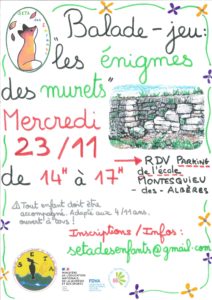 SETA
Balade-jeu:
"les énigmes
des murets"
Mercredi
23/11
de 14H à 17H
→ RDV PARKING
de l'école
MONTESQUIEU
-des-ALBÈRES
⚠ Tout enfant doit être
accompagné. Adapté aux 4/11ans.
ouvert à tous!
Inscriptions/Infos:
setadesenfants@gmail.com
SETA
FDVA